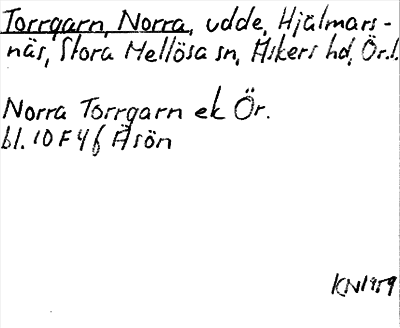 Torrgarn, Norra, udde, Hjälmars-
näs, Stora Mellösa sn, Askers hd, Ör.l.
Norra Torrgarn ek Ör.
bl. 10 F 4 f Äsön
KN 1959